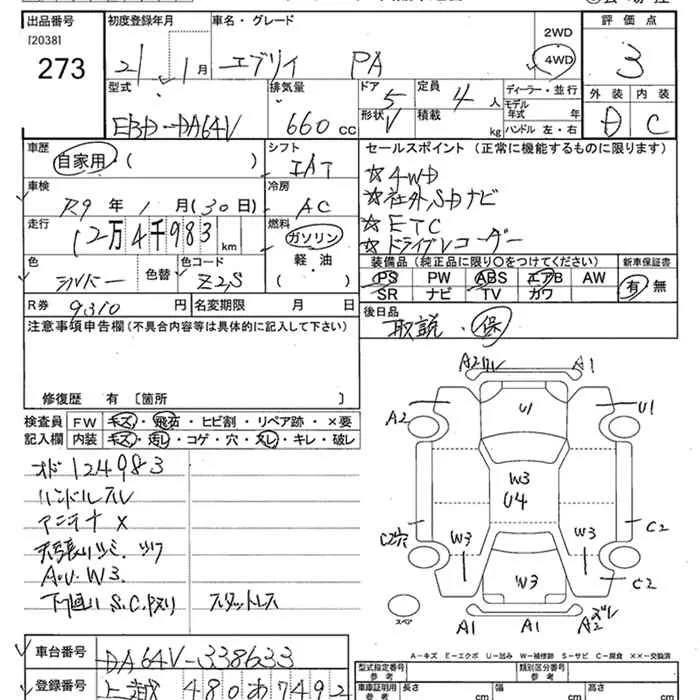 出品番号 初度登録年月 車名・グレード 評価点
[2038]
273
21年 1月 エブリイ PA 2WD 4WD 3
型式 排気量 ドア 5 定員 4人 ディーラー・並行 外装 内装
EBD-DA64V 660cc 形状 V 積載 kg モデル年式 年 ハンドル 左・右 D C
車歴 シフト セールスポイント (正常に機能するものに限ります)
自家用・( ) IAT ☆4WD
車検 冷房 ☆社外SDナビ
R9年 1月(30日) AC ☆ETC
走行 12万4千983km 燃料 ガソリン ☆ドライブレコーダー
軽・油 ( )
色 シルバー 色替 色コード Z2S
装備品 (純正品に限り○をつけてください) 新車保証書
PS PW ABS エアB AW 有・無
SR ナビ TV カワ
R券 9310円 名変期限 月 日
後日品 取説・保
注意事項申告欄(不具合内容等は具体的に記入して下さい)
修復歴 有 〔箇所 〕
検査員 FW キズ・飛石・ヒビ割・リペア跡・×要
記入欄 内装 キズ・汚レ・コゲ・穴・スレ・キレ・破レ
オド124983
ハンドルスレ
アンテナ X
天張り
A.U.W3.
下回り S.C.
スタットレス
A1
A2 U1 U1
W3
U4
C2 W3 W3 C2
W3 C2
スペア A1 A1 A2
A-キズ E-エクボ U-凹み W-補修跡 S-サビ C-腐食 XX-交換済
車台番号 DA64V-338633
登録番号 480あ7492
型式指定番号 参考 類別区分番号 参考
車庫証明用 参考 長さ cm 幅 cm 高さ cm